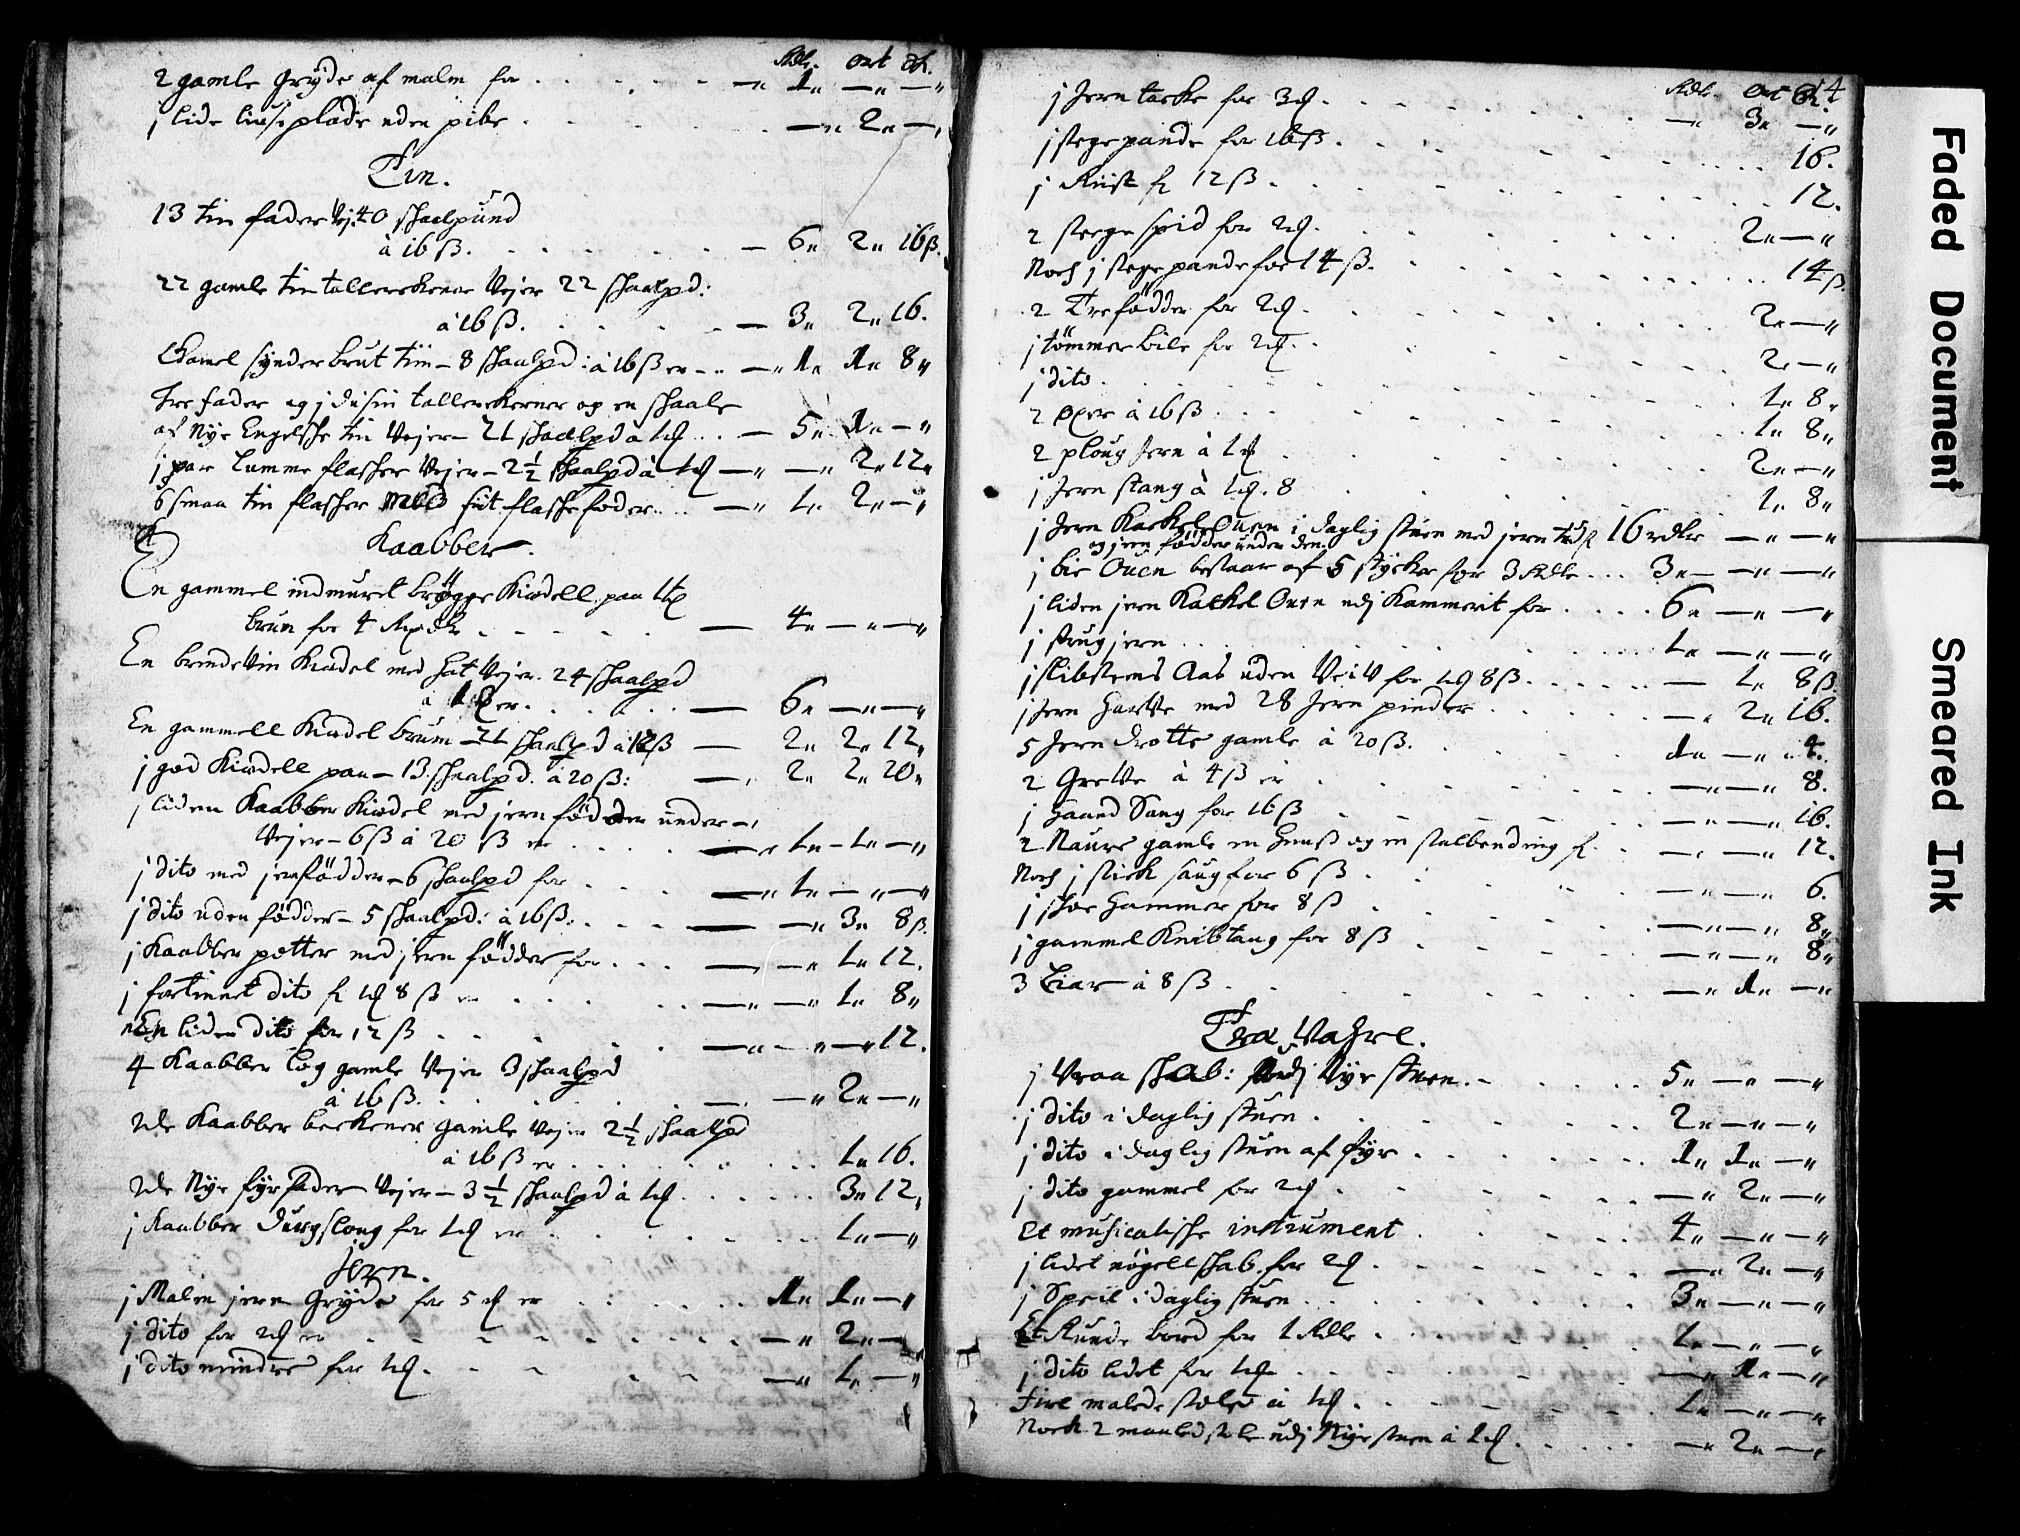 Rdlr. ort ß.
2 gamle Gryder af malm for . . . . . . —„ 1„ —„ —„
j lide liuse plade uden pibe . . . . . —„ 2„ —„
Tin.
13 tin fader Vej: 40 skaalpund
à 16 ß. . . . . . . — 6„ 2„ 16 ß.
22 gamle tin tallerckener Vejer 22 skaalpd:
à 16 ß. . . . . . — 3„ 2„ 16.
Gamel sønderbrut tin – 8 skaalpd: à 16 ß er – . . —„ 1„ 1„ 8„
Tre fader og j dusin tallerckener og en skaale
af Nye Engelsche tin Vejer – 21 skaalpd à 1 ort . . — 5„ 1„ —„
j par Lumme flascher Vejer – 2½ skaalpd à 1 ort —„ —„ 2„ 12„
6 smaa tin flascher med sit flaschefoder . . . —„ 1„ 2„ —„
Kaabber.
En gammel indmuret brøgge Kiedell paa 1 tø
brun for 4 Rixdlr . . . . . — 4„ —„ —„
En brendeVin Kiedel med hat Vejer. 24 skaalpd
à 1 ort er . . . . . . — 6„ —„ —„
En gammell Kiedel brun – 21 skaalpd à 12 ß — 2„ 2„ 12„
j god Kiedell paa – 13 skaalpd. à 20 ß: — 2„ 2„ 20„
j liden Kaabber Kiedel med jern fødder under –,
Vejer – 6 ß à 20 ß er . . . . —„ 1„ – 1„ —„
j dito med jernfødder – 6 skaalpd for . . . . —„ 1„ —„ —„
j dito uden fødder – 5 skaalpd: à 16 ß: . . . . — —„ 3„ 8 ß.
j Kaabber potter med jern fødder for . . . — —„ 1„ 12.
j fortinnet dito for 1 ort 8 ß er . . . . . —„ —„ 1„ 8„
En liden dito for 12 ß . . . . . . —„ —„ —„ 12.
4 Kaabber Log gamle Vejer 3 skaalpd
à 16 ß. . . . . . . —, —„ 2„ —„
2de Kaabber beckener gamle Vejer 2½ skaalpd
à 16 ß er . . . . . . . . 1„ 16.
2de Nye fyrfader Vejer – 3½ skaalpd à 1 ort . . . . . 3„ 12„
j Kaabber Durgslong for 1 ort er . . . . . . . 1„ —„
Jern.
j Malm jern Gryde for 5 ort er . . . . . . 1„ 1„ —„
j dito for 2 ort er . . . . . . . . —„ 2„ —„
j dito mindre for 1 ort . . . . . —„ 1„ —„
14
Rdlr. Ort ß.
j Jern tacke for 3 ort . . . . . . . . —„ 3„ —„
j stege pande for 16 ß . . . . . . . . 16.
j Rist for 12 ß . . . . . . . . 12.
2 stege spid for 2 ort . . . . . . . 2„ —„
Noch j stege pande for 14 ß. . . . . . . . 14 ß.
2 Trefødder for 2 ort . . . . . . . . 2„ —„
j tømmer bile for 2 ort . . . . . . . 2„ —„
j dito . . . . . . . . . 1„ 8„
2 øxer à 16 ß . . . . . . . . 1„ 8„
2 ploug Jern à 1 ort . . . . . . . 2„ —„
j Jern stang à 1 ort. 8 . . . . . . 1„ 8„
j Jern Kackel Ouen i daglig stuen med jern 16 rdlr —„ —„
og jern fødder under den.
j bie Ouen bestaar af 5 stycker for 3 Rdlr . . . 3„ — —„ —„
j liden jern Kackel Ouen udj Kammerit for . . . . 6„ —„ —„
j strug jern . . . . . . . . 1„ —„ —„
j slibsteens Aas uden Veiv for 1 ort 8 ß. . . . . . — 1„ 8 ß.
j Jern HarVe med 28 Jern pinder . . . . . —„ 2„ 16.
5 Jern Drotte gamle à 20 ß. . . . . . 1„ —„ 4.
2 GreVe à 4 ß er . . . . . . . —„ —„ 8.
j Haand Saug for 16 ß . . . . . . —„ —„ 16.
2 Naure gamle en Huuß og en stalbending for . . —„ —„ 12.
Noch j stick saug for 6 ß . . . . . —„ —„ 6.
j skoe Hammer for 8 ß . . . . . . —„ —„ 8„
j gammel Knibtang for 8 ß . . . . . —„ —„ 8„
3 Liar à 8 ß . . . . . . . . —„ 1„ —„
Træ Vahre.
j Vraa skab: udj Nye stuen. . . . . . 5„ —„ —„
j dito i daglig stuen . . . . . . . 2„ —„ —„
j dito i daglig stuen af fyr . . . . . . 1„ 1„ —„
j dito gammel for 2 ort . . . . . . —„ 2„ —„
Et musicalische instrument . . . . . . 4„ —„ —„
j lidet nøgell skab for 2 ort . . . . . . —„ 2„ —„
j Speil i daglig stuen . . . . . . . 3„ —„ —„
Et Runde bord for 1 Rdlr . . . . . . 1„ —„ —„
j dito lidet for 1 ort . . . . . . . —„ 1„ —„
Fire malede stole à 1 ort . . . . . . 1„ —„ —„
Noch 2 maaled stole udj Nye stuen à 1 ort . . . . . —„ 2„ —„
Faded Document
Smeared Ink